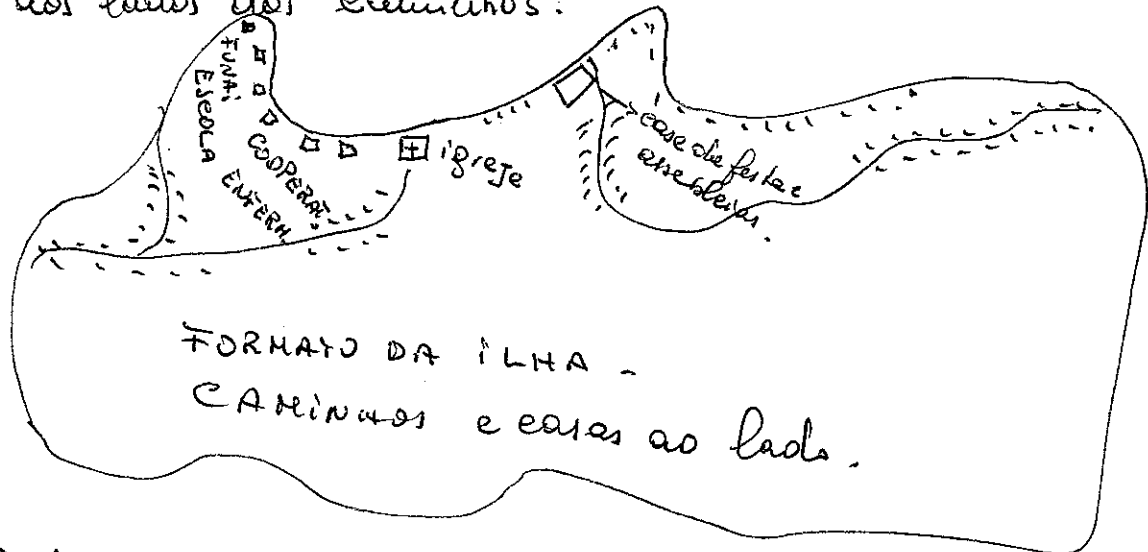 nos lados dos caminhos.
FUNAI
ESCOLA
COOPERAT.
ENFERM.
igreja
casa de festa e
assembleias.
FORMATO DA ILHA -
CAMINHOS e casas ao lado.